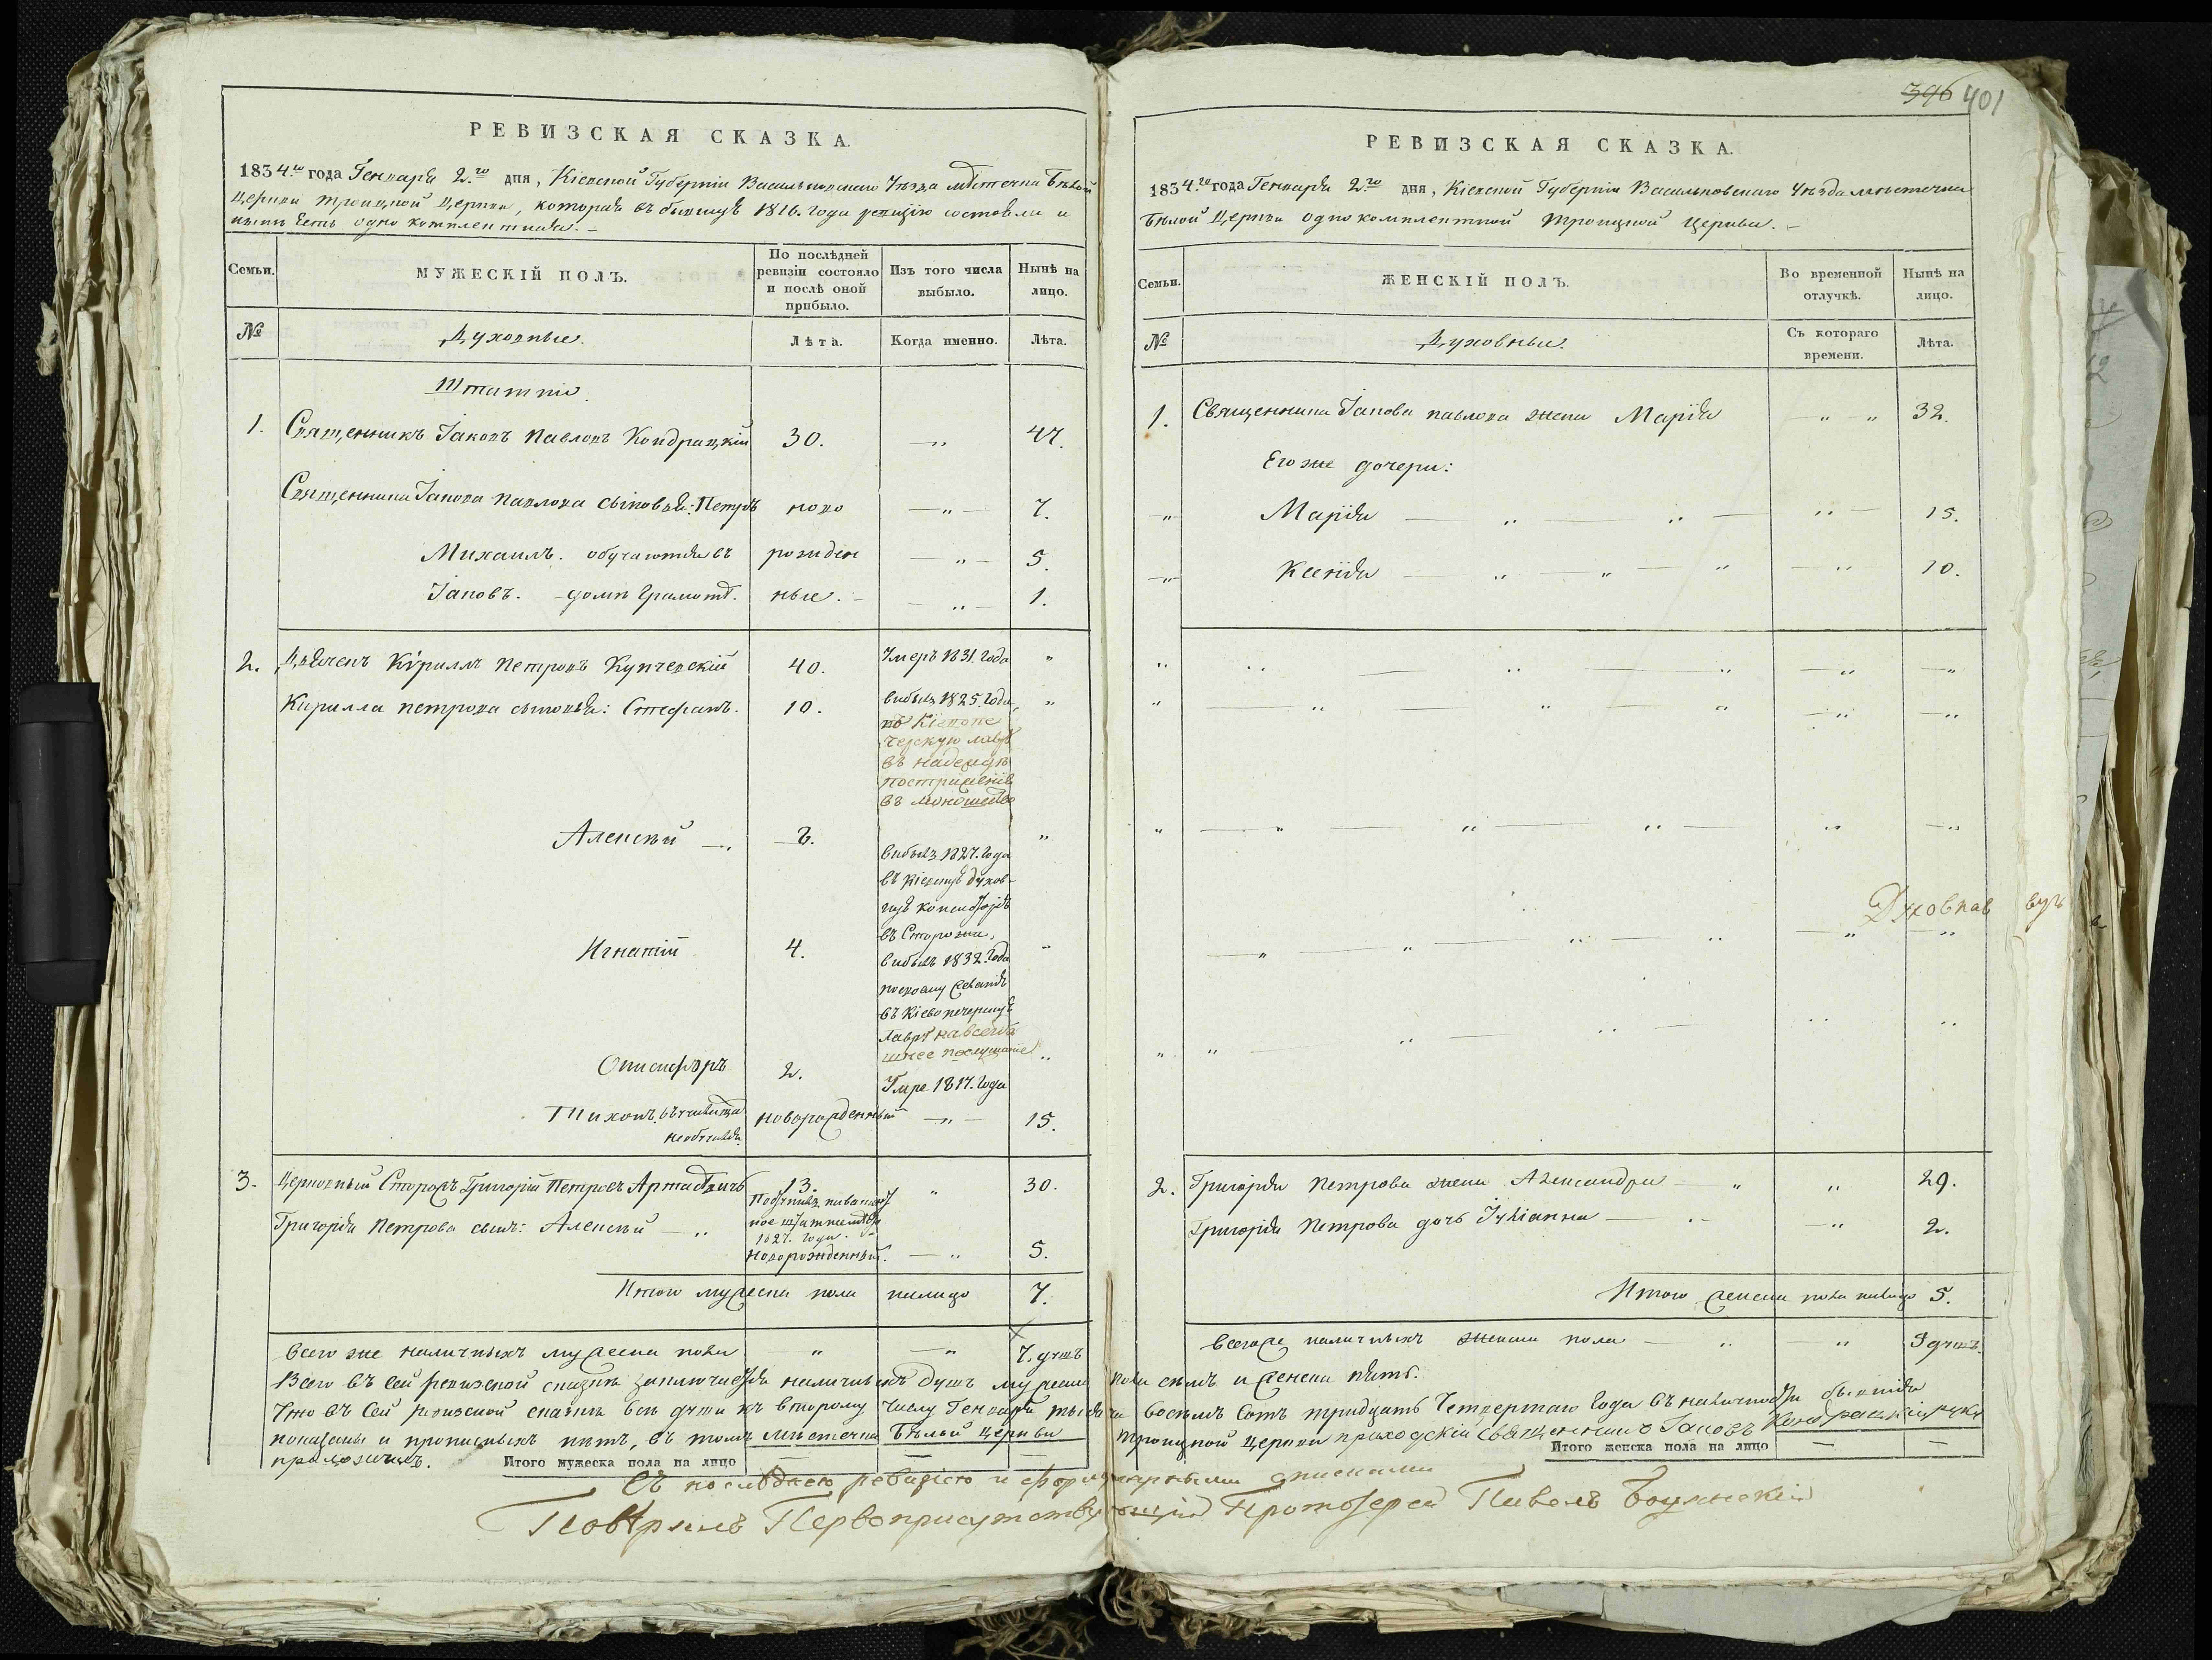 396 401
РЕВИЗСКАЯ СКАЗКА.
1834.го года Генваря 2.го дня, Кіевской Губерніи Васильковскаго Уѣзда мѣстечка Бѣлой
Церкви Троицкой Церкви, которая въ бывшую 1816. года ревизію состояла и
нынѣ есть одно комплектная. –
Семьи.
МУЖЕСКІЙ ПОЛЪ.
По послѣдней
ревизіи состояло
и послѣ оной
прибыло.
Изъ того числа
выбыло.
Нынѣ на
лицо.
№
Духовные.
Лѣта.
Когда именно.
Лѣта.
Штатніе.
1. Священникъ Іаковъ Павловъ Кондрацкій 30. „ 47.
Священника Іакова Павлова сыновья: Петръ ново — „ — 7.
Михаилъ. обучаются въ рожден — „ — 5.
Іаковъ. – домѣ Грамотѣ. ные. – — „ — 1.
2. Дьячекъ Кириллъ Петровъ Купчевскій 40. Умеръ 1831. Года „
Кирилла Петрова сыновья: Стефанъ. 10. выбылъ 1825. Года, „
въ Кіевопе
черскую лавру
въ надежду
постриженія
въ монашество
Алексѣй — „ „
выбылъ 1827. Года
въ Кіевскую духов-
ную консисторію
въ Сторожи,
Игнатій 4. „
выбылъ 1832. Года
въ Кіевопечерскую
Лавру на всег
шнее послушаніе
Онисифоръ 2. „
Умре 1817. Года
Тихонъ новорожденный — „ — 15.
3. Церковный Сторожъ Григорій Петровъ 13. „ 30.
1827. Года.
Григорія Петрова сынъ: Алексѣй — „ новорожденный. — „ 5.
Итого мужеска пола налицо 7.
Всего же наличныхъ мужеска пола „ — „ 7. душъ
РЕВИЗСКАЯ СКАЗКА.
1834.го года Генваря 2.го дня, Кіевской Губерніи Васильковскаго Уѣзда мѣстечка
Бѣлой Церкви одно комплектной Троицкой Церкви. –
Семьи.
ЖЕНСКІЙ ПОЛЪ.
Во временной
отлучкѣ.
Нынѣ на
лицо.
№
Духовные.
Съ котораго
времени.
Лѣта.
1. Священника Іакова Павлова жена Марія „ „ 32.
Его же дочери:
„ Марія — „ — „ — „ — 15.
„ Ксенія — „ — „ — „ — „ 10.
Духовнав вул
2. Григорія Петрова жена Александра — „ „ 29.
Григорія Петрова дочь Іуліанна — „ — „ 2.
Итого женска пола налицо 5.
Всего же наличныхъ женска пола — „ — „ 5 душъ.
Всего въ сей ревизской сказкѣ заключается наличныхъ душъ мужеска пола семь и женска пять.
Что въ сей ревизской сказкѣ всѣ души къ второму числу Генваря тысяча восемь сотъ тридцать четвертаго года въ наличности бывшія
показаны и прописныхъ нѣтъ, въ томъ мѣстечка Бѣлой Церкви Троицкой Церкви приходскій священникъ Іаковъ Кондрацкій руку
приложилъ.
Итого мужеска пола на лицо — —
Итого женска пола на лицо — —
Съ послѣднею ревизіею и формулярными списками
Повѣрялъ Первоприсутствующій Протоіерей Павелъ